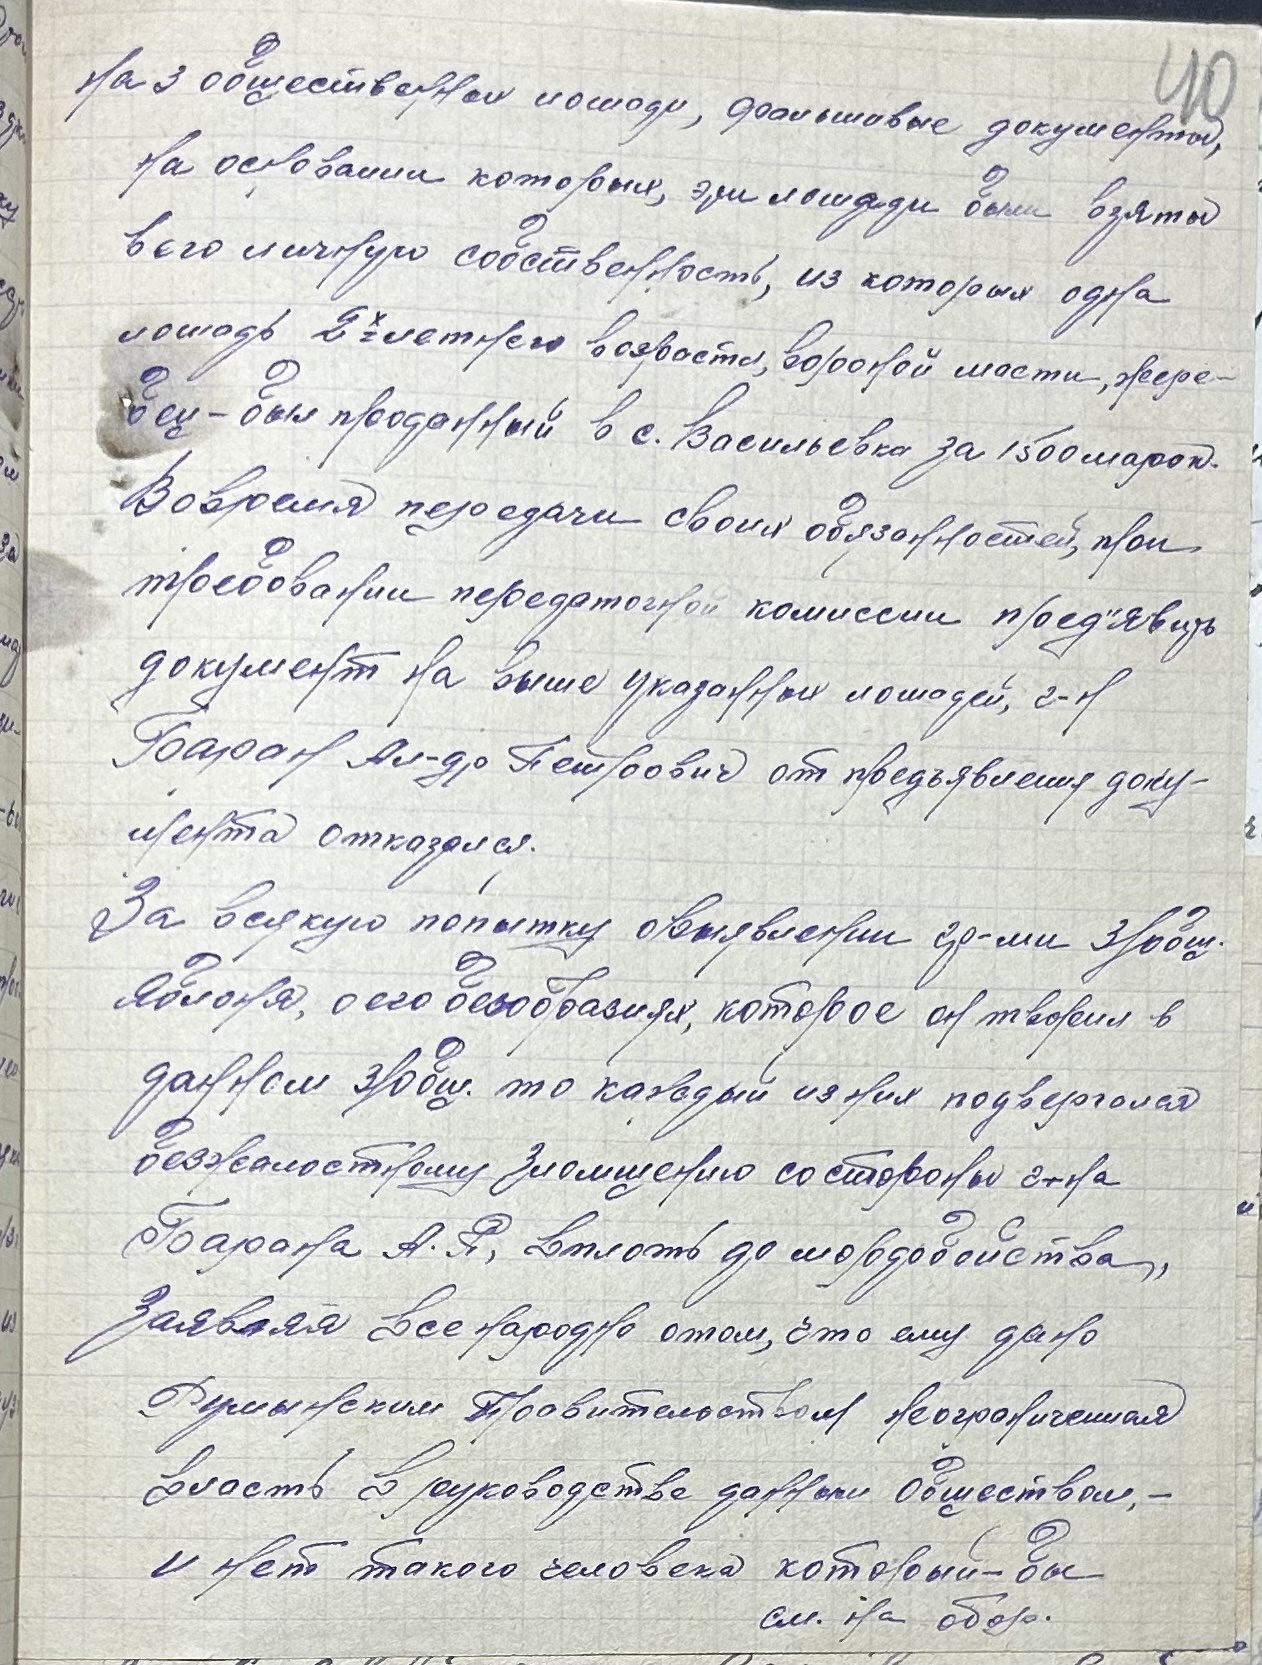 40
на 3 общественных лошади, фальшивые документы,
на основании которых, эти лошади были взяты
в его личную собственность, из которых одна
лошадь 2х летнего возраста, вороной масти, жере-
бец - был проданный в с. Васильевка за 1500 марок.
Вовремя передачи своих обязанностей, при
требовании передаточной комиссии пред"явить
документ на выше указанных лошадей, г-н
Баран Ал-др Петрович от предъявления доку-
мента отказался.
За всякую попытку о выявлении гр-ми
Яблоня, о его безобразиях, которое он творил в
данном то каждый из них подвергался
безжалостному со стороны г-на
Барана А.П, вплоть до мордобойства,
Заявляя всенародно о том, что ему дано
Румынским Правительством неограниченная
власть в руководстве данным Обществом, -
и нет такого человека который-бы
см. на обор.